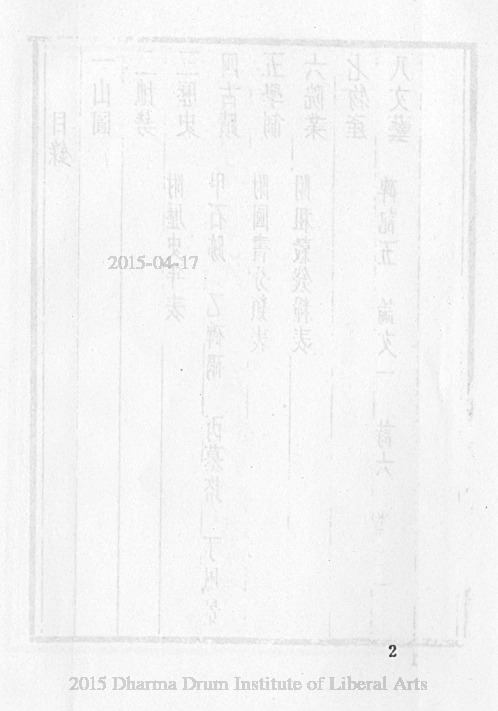 目錄
一山圖
二地勢
三歷史 附歷史年表
四古蹟 甲石跡 乙碑碣 丙墓塔
五學制 附圖書分類表
六院業 附租穀錢糧表
七物產
八文藝 碑記五 論文一 詩六
2015-04-17
2
2015 Dharma Drum Institute of Liberal Arts